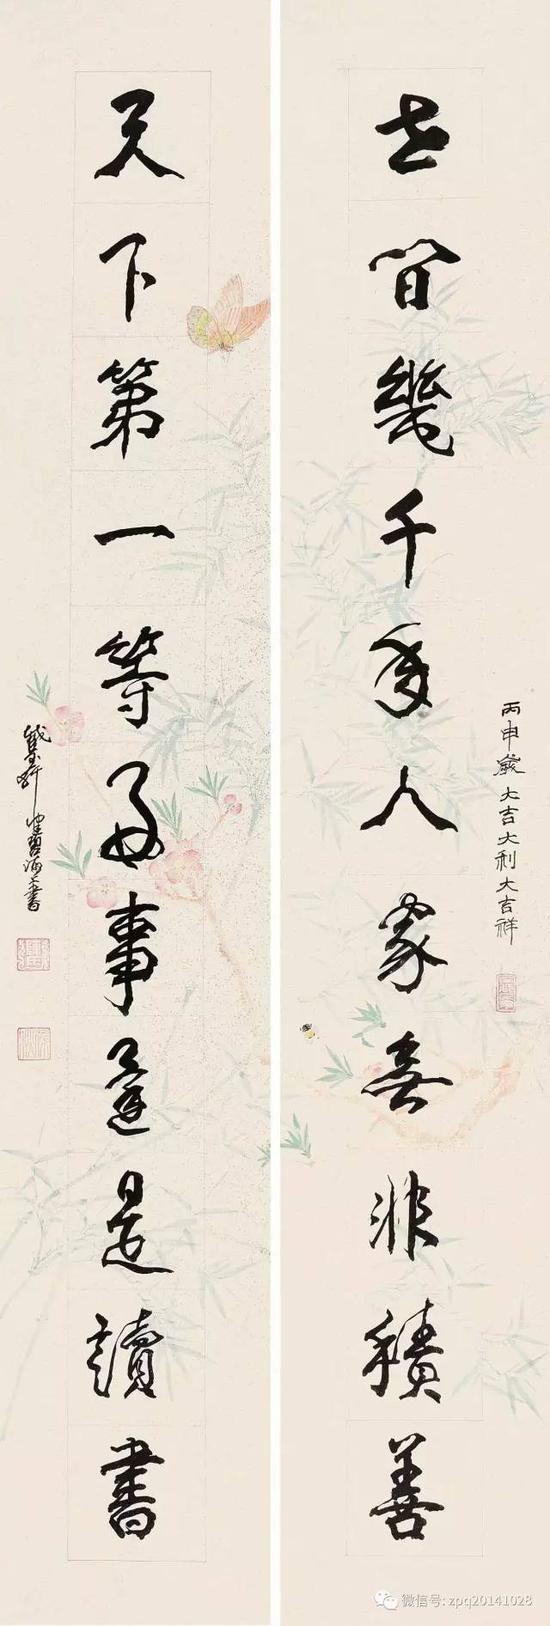 世間幾千年人家無非積善
丙申歲大吉大利大吉祥
天下第一等好事還是讀書
微信号: zpq20141028